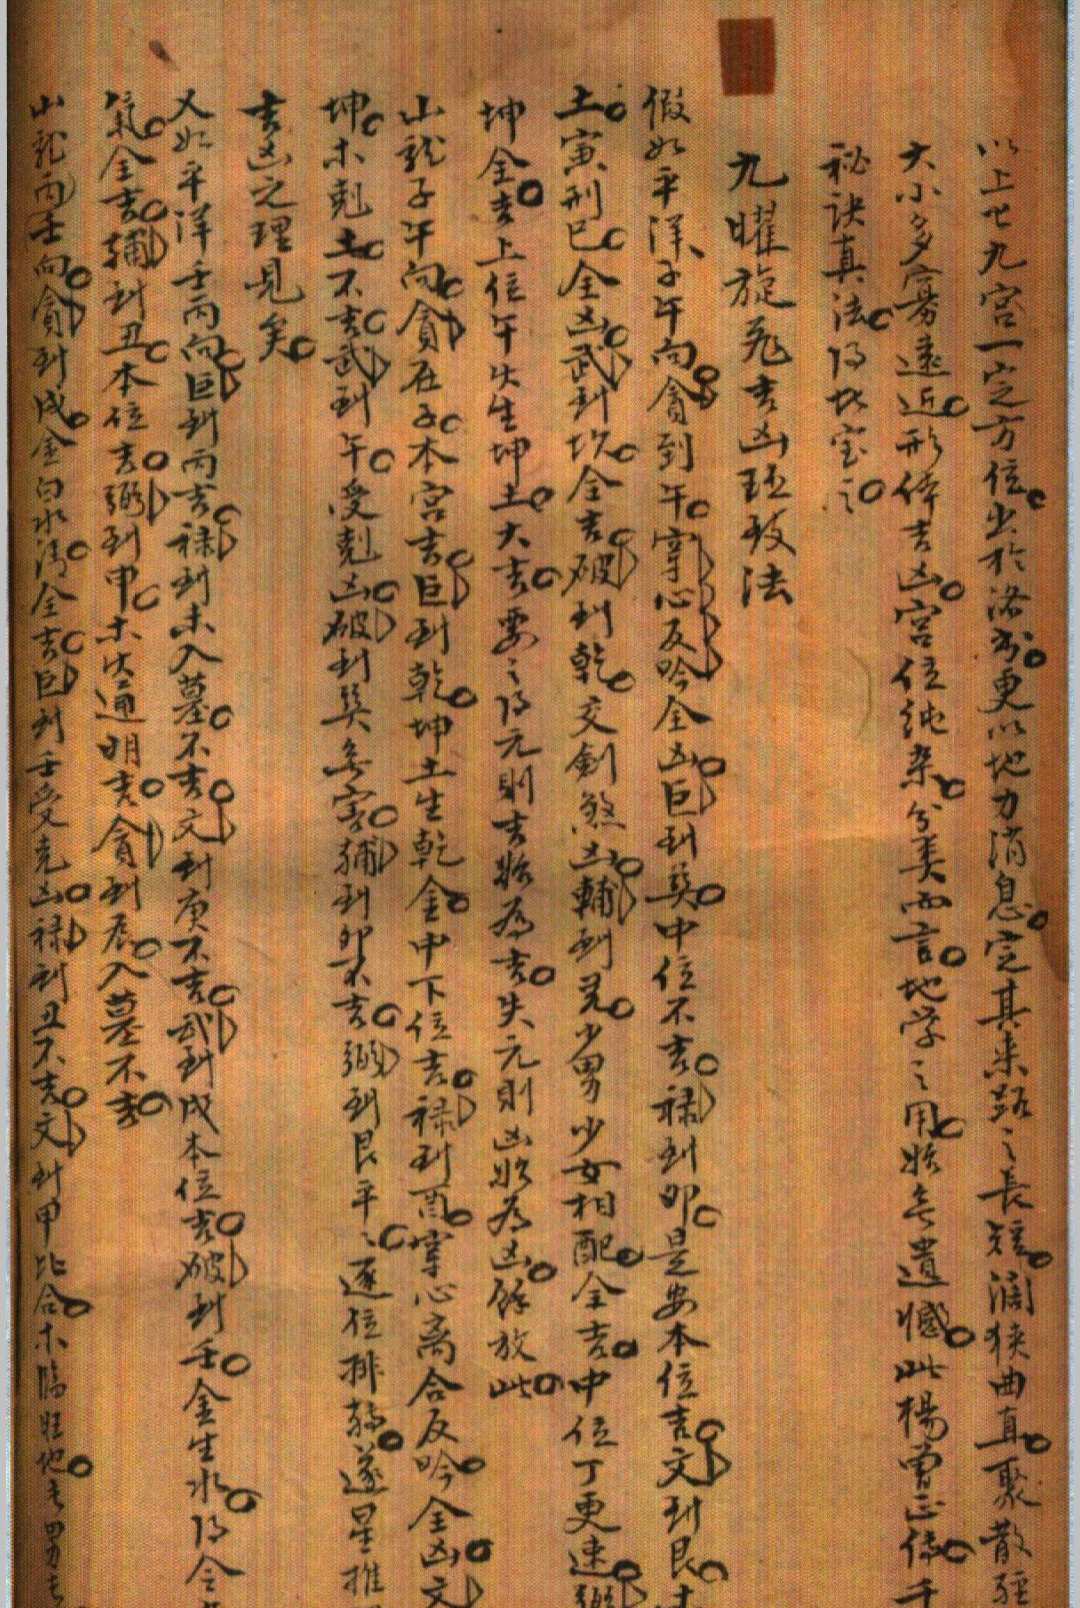 以上七九宫一定方位出於洛书更以地力消息定其来路之长短阔狭曲直聚散
大小多寡远近形体吉凶宫位纯杂分类而言地学之用始无遗憾此杨曾正传千
秘诀真法得此宝之
九曜旋飛吉凶
假如平洋子午向貪到午穿心反吟全凶巨到巽中位不吉禄到卯是安本位吉文到艮
土寅刑巳全凶武到坎全吉破到乾交劍煞凶輔到兑少男少女相配全吉中位丁更速弼
坤全吉上位午火生坤土大吉要之得元则吉始為吉失元则凶始為凶餘放此
山龍子午向貪在子本宫吉巨到乾坤土生乾金中下位吉禄到酉穿心离合反吟全凶文
坤木剋土不吉武到午受剋凶破到巽无害輔到卯不吉弼到艮平之逐位排龍遂星推
吉凶之理見矣
又如平洋壬丙向巨到丙吉禄到未入墓不吉文到庚不吉武到戌本位吉破到壬金生水得令
氣全吉輔到丑本位吉弼到申木火通明吉貪到辰入墓不吉
山龍丙壬向貪到戌金白水清全吉巨到壬受克凶禄到丑不吉文到甲比合木臨旺地